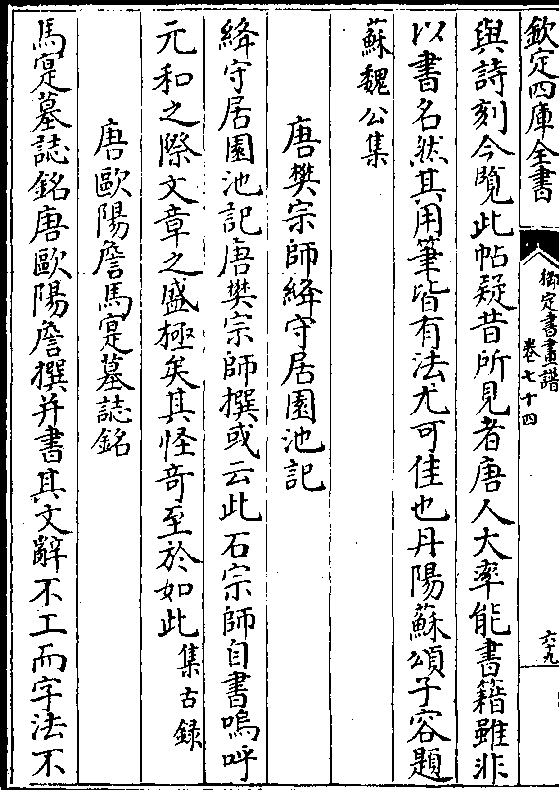 欽定四庫全書
御定書畫譜
卷七十四
六十九
與詩刻今覽此帖疑昔所見者唐人大率能書籍雖非
以書名然其用筆皆有法尤可佳也丹陽蘇頌子容題
蘇魏公集
唐樊宗師絳守居園池記
絳守居園池記唐樊宗師撰或云此石宗師自書嗚呼
元和之際文章之盛極矣其怪奇至於如此集古録
唐歐陽詹馬寔墓誌銘
馬寔墓誌銘唐歐陽詹撰并書其文辭不工而字法不